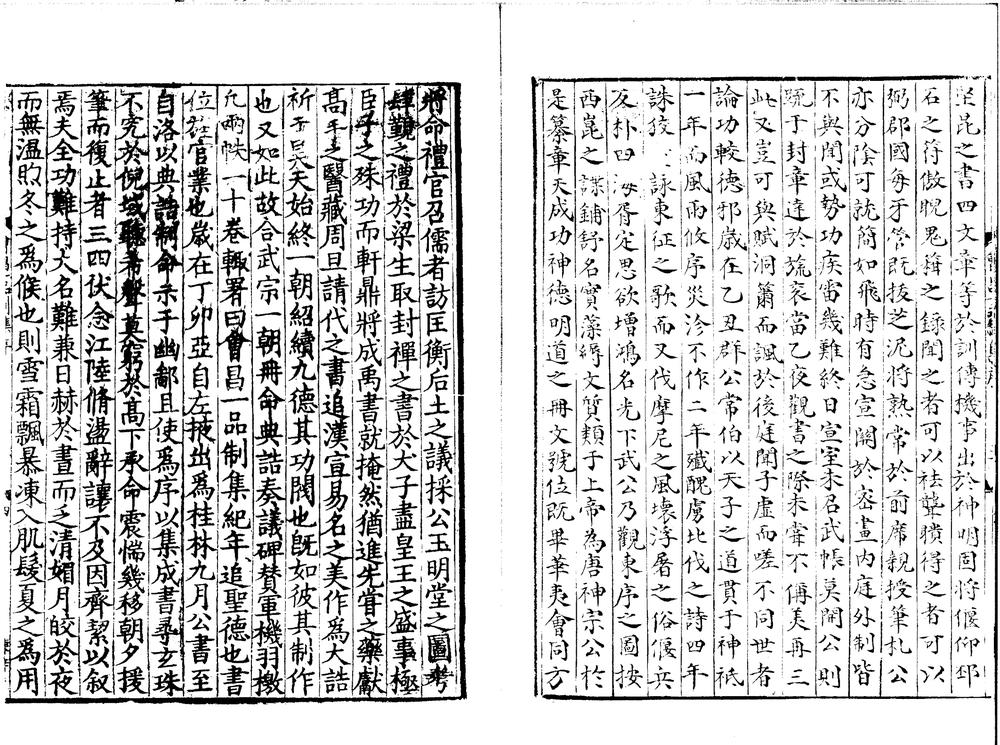 昆之書四文章等於訓傳機事出於神明固將偃仰邳
石之符傲睨鬼揖之錄聞之者可以祛聾瞶得之者可以
弼郡國每牙管既拔芝泥將熟常於前席親授筆札公
亦分陰可就簡如飛時有急宣關於密畫內庭外制皆
不與聞或勢功疾雷幾難終日宣室未召武帳莫開公則
疏于封章達於旒衮當乙夜觀書之際未嘗不稱美再三
此又豈可與賦洞簫而諷於後庭聞子虛而嗟不同世者
論功較德邪歲在乙丑群公常伯以天子之道貫于神祇
一年而風雨攸序災沴不作二年殲醜虜北伐之詩四年
誅狡詠東征之歌而又伐摩尼之風壞浮屠之俗偃兵
反朴四海胥定思欲增鴻名光下武公乃觀東序之圖按
西崑之諜鋪舒名實藻縟文質類于上帝為唐神宗公於
是纂章天成功神德明道之冊文號位既畢華夷會同方
將命禮官召儒者訪匡衡后土之議採公玉明堂之圖考
肆覲之禮於梁生取封禪之書於犬子盡皇王之盛事極
臣子之殊功而軒鼎將成禹書就掩然猶進先甞之藥獻
高手之醫藏周旦請代之書追漢宣易名之美作爲大誥
祈于昊天始終一朝紹續九德其功閥也既如彼其制作
也又如此故合武宗一朝冊命典誥奏議碑贊軍機羽檄
凡兩帙一十卷輒署曰會昌一品制集紀年追聖德也書
位旌官業也歲在丁卯亞自左掖出爲桂林九月公書至
自洛以典誥制命示于幽鄙且使爲序以集成書尋玄珠
不究於倪域聽希聲莫窮於高下承命震惴幾移朝夕援
筆而復止者三四伏念江陸脩盪辭讓不及因齊絜以叙
焉夫全功難持大名難兼日赫於晝而乏清媚月皎於夜
而無温煦冬之爲候也則雪霜飄暴凍入肌髮夏之爲用